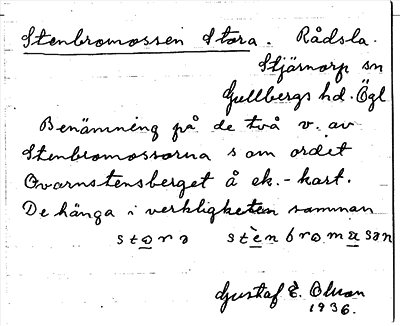 Stenbromossen Stora. Rådsla.
Stjärnorp sn
Gullbergs hd. Ögl
Benämning på de två v. av
Stenbromossarna som ordet
Qvarnstensberget å ek.-kart.
De hänga i verkligheten samman
stora stènbromasan
Gustaf E. Olson
1936.